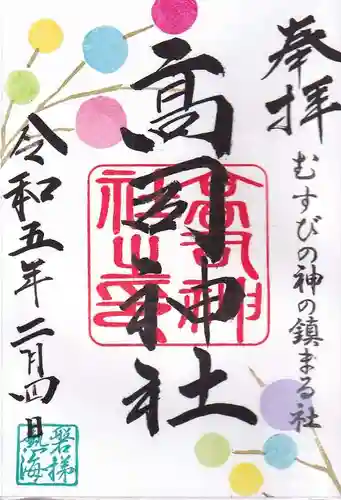 奉拝
むすびの神の鎮まる社
高岡神社
高岡神社之印
令和五年二月四日
磐梯
熱海